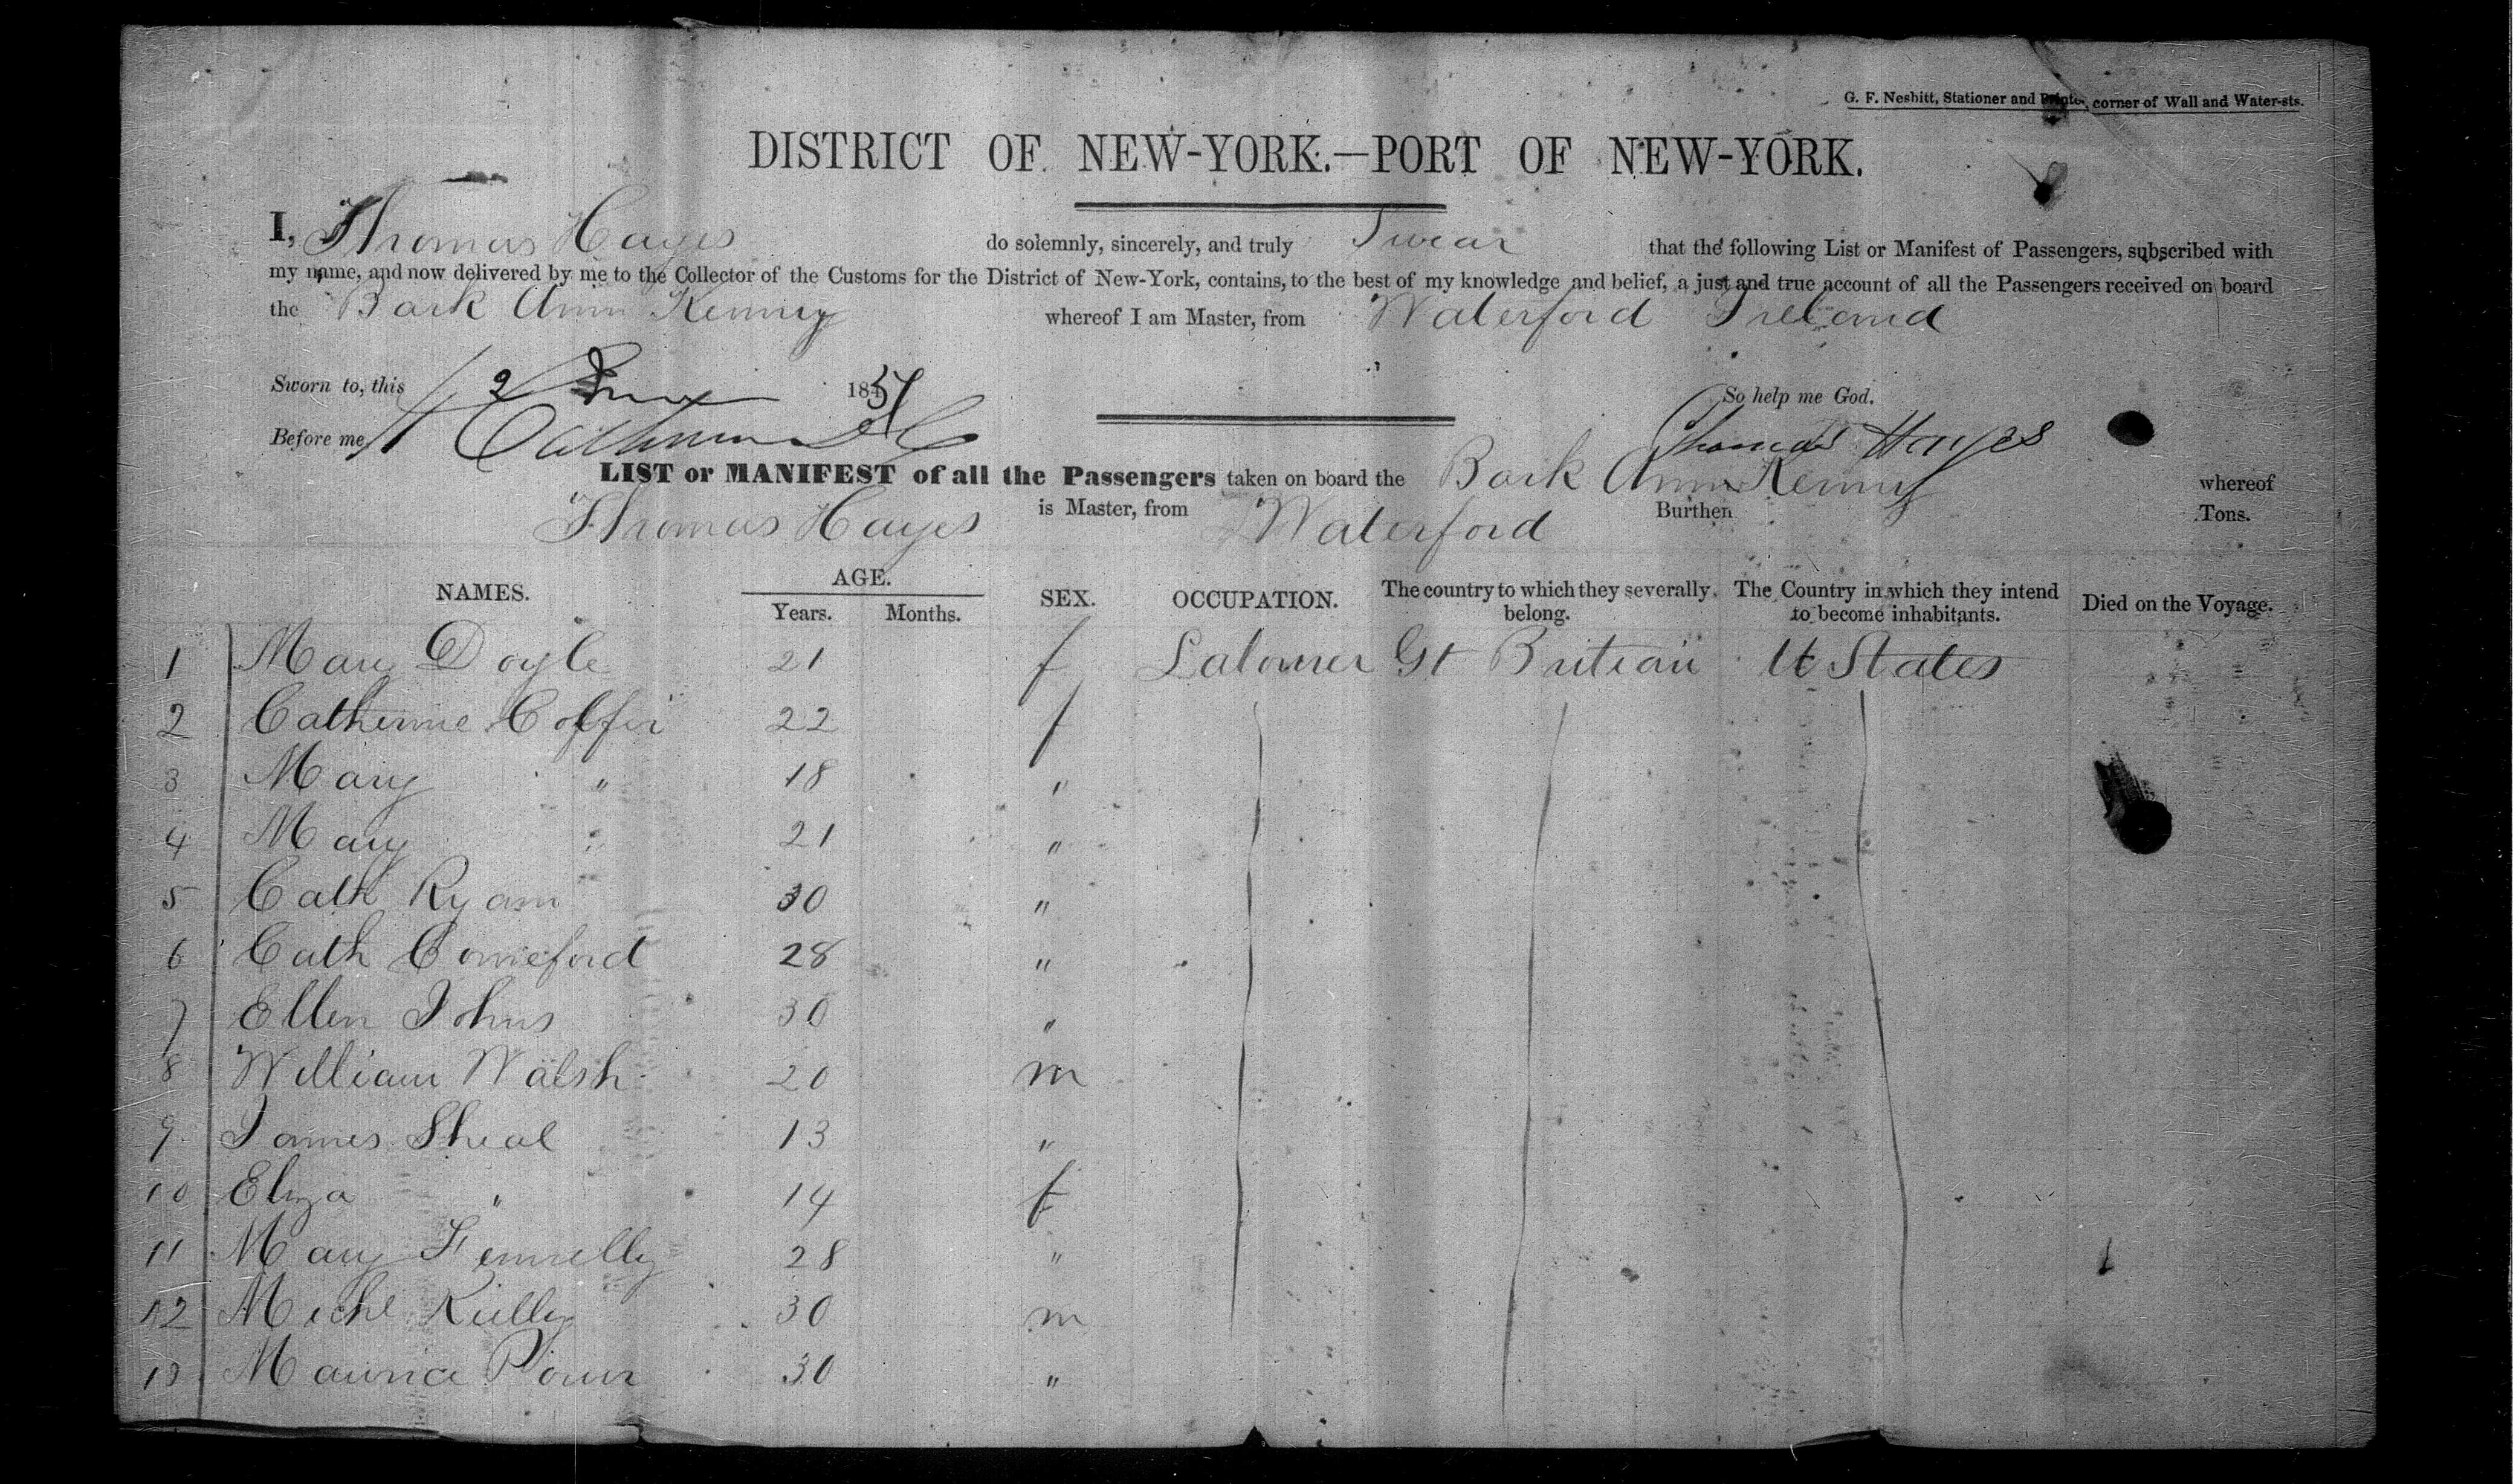 G. F. Nesbitt, Stationer and Printer, corner of Wall and Water-sts.
DISTRICT OF NEW-YORK.—PORT OF NEW-YORK.
I, Thomas Hayes do solemnly, sincerely, and truly Swear that the following List or Manifest of Passengers, subscribed with
my name, and now delivered by me to the Collector of the Customs for the District of New-York, contains, to the best of my knowledge and belief, a just and true account of all the Passengers received on board
the Bark Ann Kenny whereof I am Master, from Waterford Ireland
Sworn to, this 2 June 1851 So help me God.
Before me, Thomas Hayes
LIST or MANIFEST of all the Passengers taken on board the Bark Ann Kenny whereof
Thomas Hayes is Master, from Waterford Burthen Tons.
NAMES. AGE. Years. Months. SEX. OCCUPATION. The country to which they severally belong. The Country in which they intend to become inhabitants. Died on the Voyage.
1 Mary Doyle 21 f Labourer Gt Britain U States
2 Catherine Coffin 22 f
3 Mary " 18 "
4 Mary " 21 "
5 Cath Ryan 30 "
6 Cath Comeford 28 "
7 Ellen Johns 30 "
8 William Walsh 20 m
9 James Sheal 13 "
10 Eliza " 14 f
11 Mary Fennelly 28 "
12 Michl Kielly 30 m
13 Maurice Power 30 "